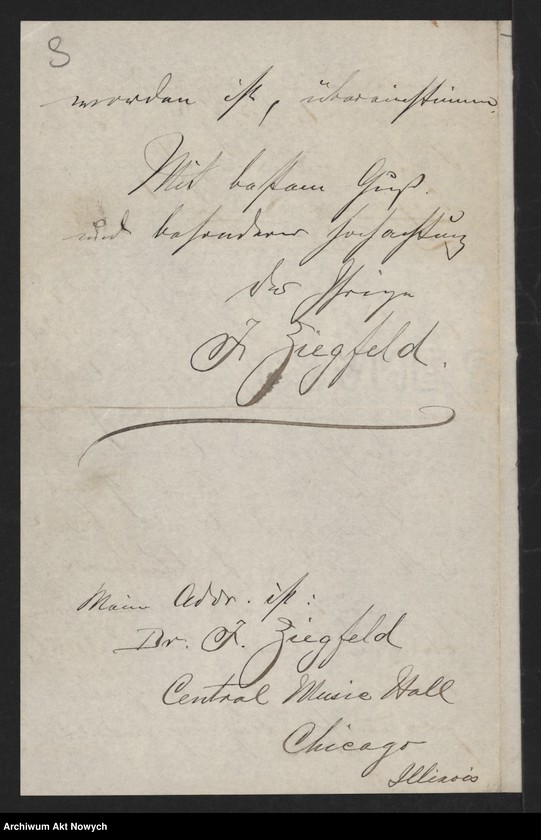 S
worden ist, übereinstimme.
Mit bestem Gruß.
und besonderer Hochachtung
der Ihrige
F. Ziegfeld.
Meine Addr. ist:
Dr. F. Ziegfeld
Central Music Hall
Chicago
Illinois
Archiwum Akt Nowych